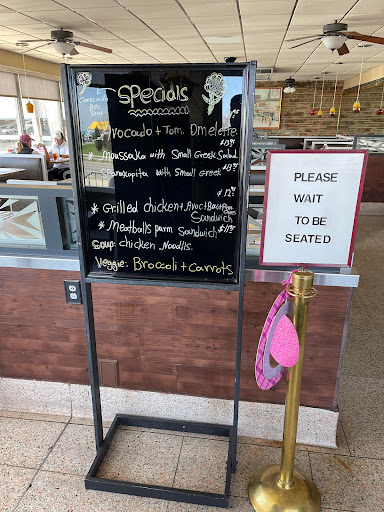 Specials
Avocado + Tom. Omelette
* Moussaka with Small Greek Salad
Spanakopita with Small Greek
* Grilled chicken + Avoc + Bac
Sandwich
* Meatballs parm Sandwich $11
Soup: chicken Noodls.
Veggie: Broccoli + Carrots
PLEASE
WAIT
TO BE
SEATED